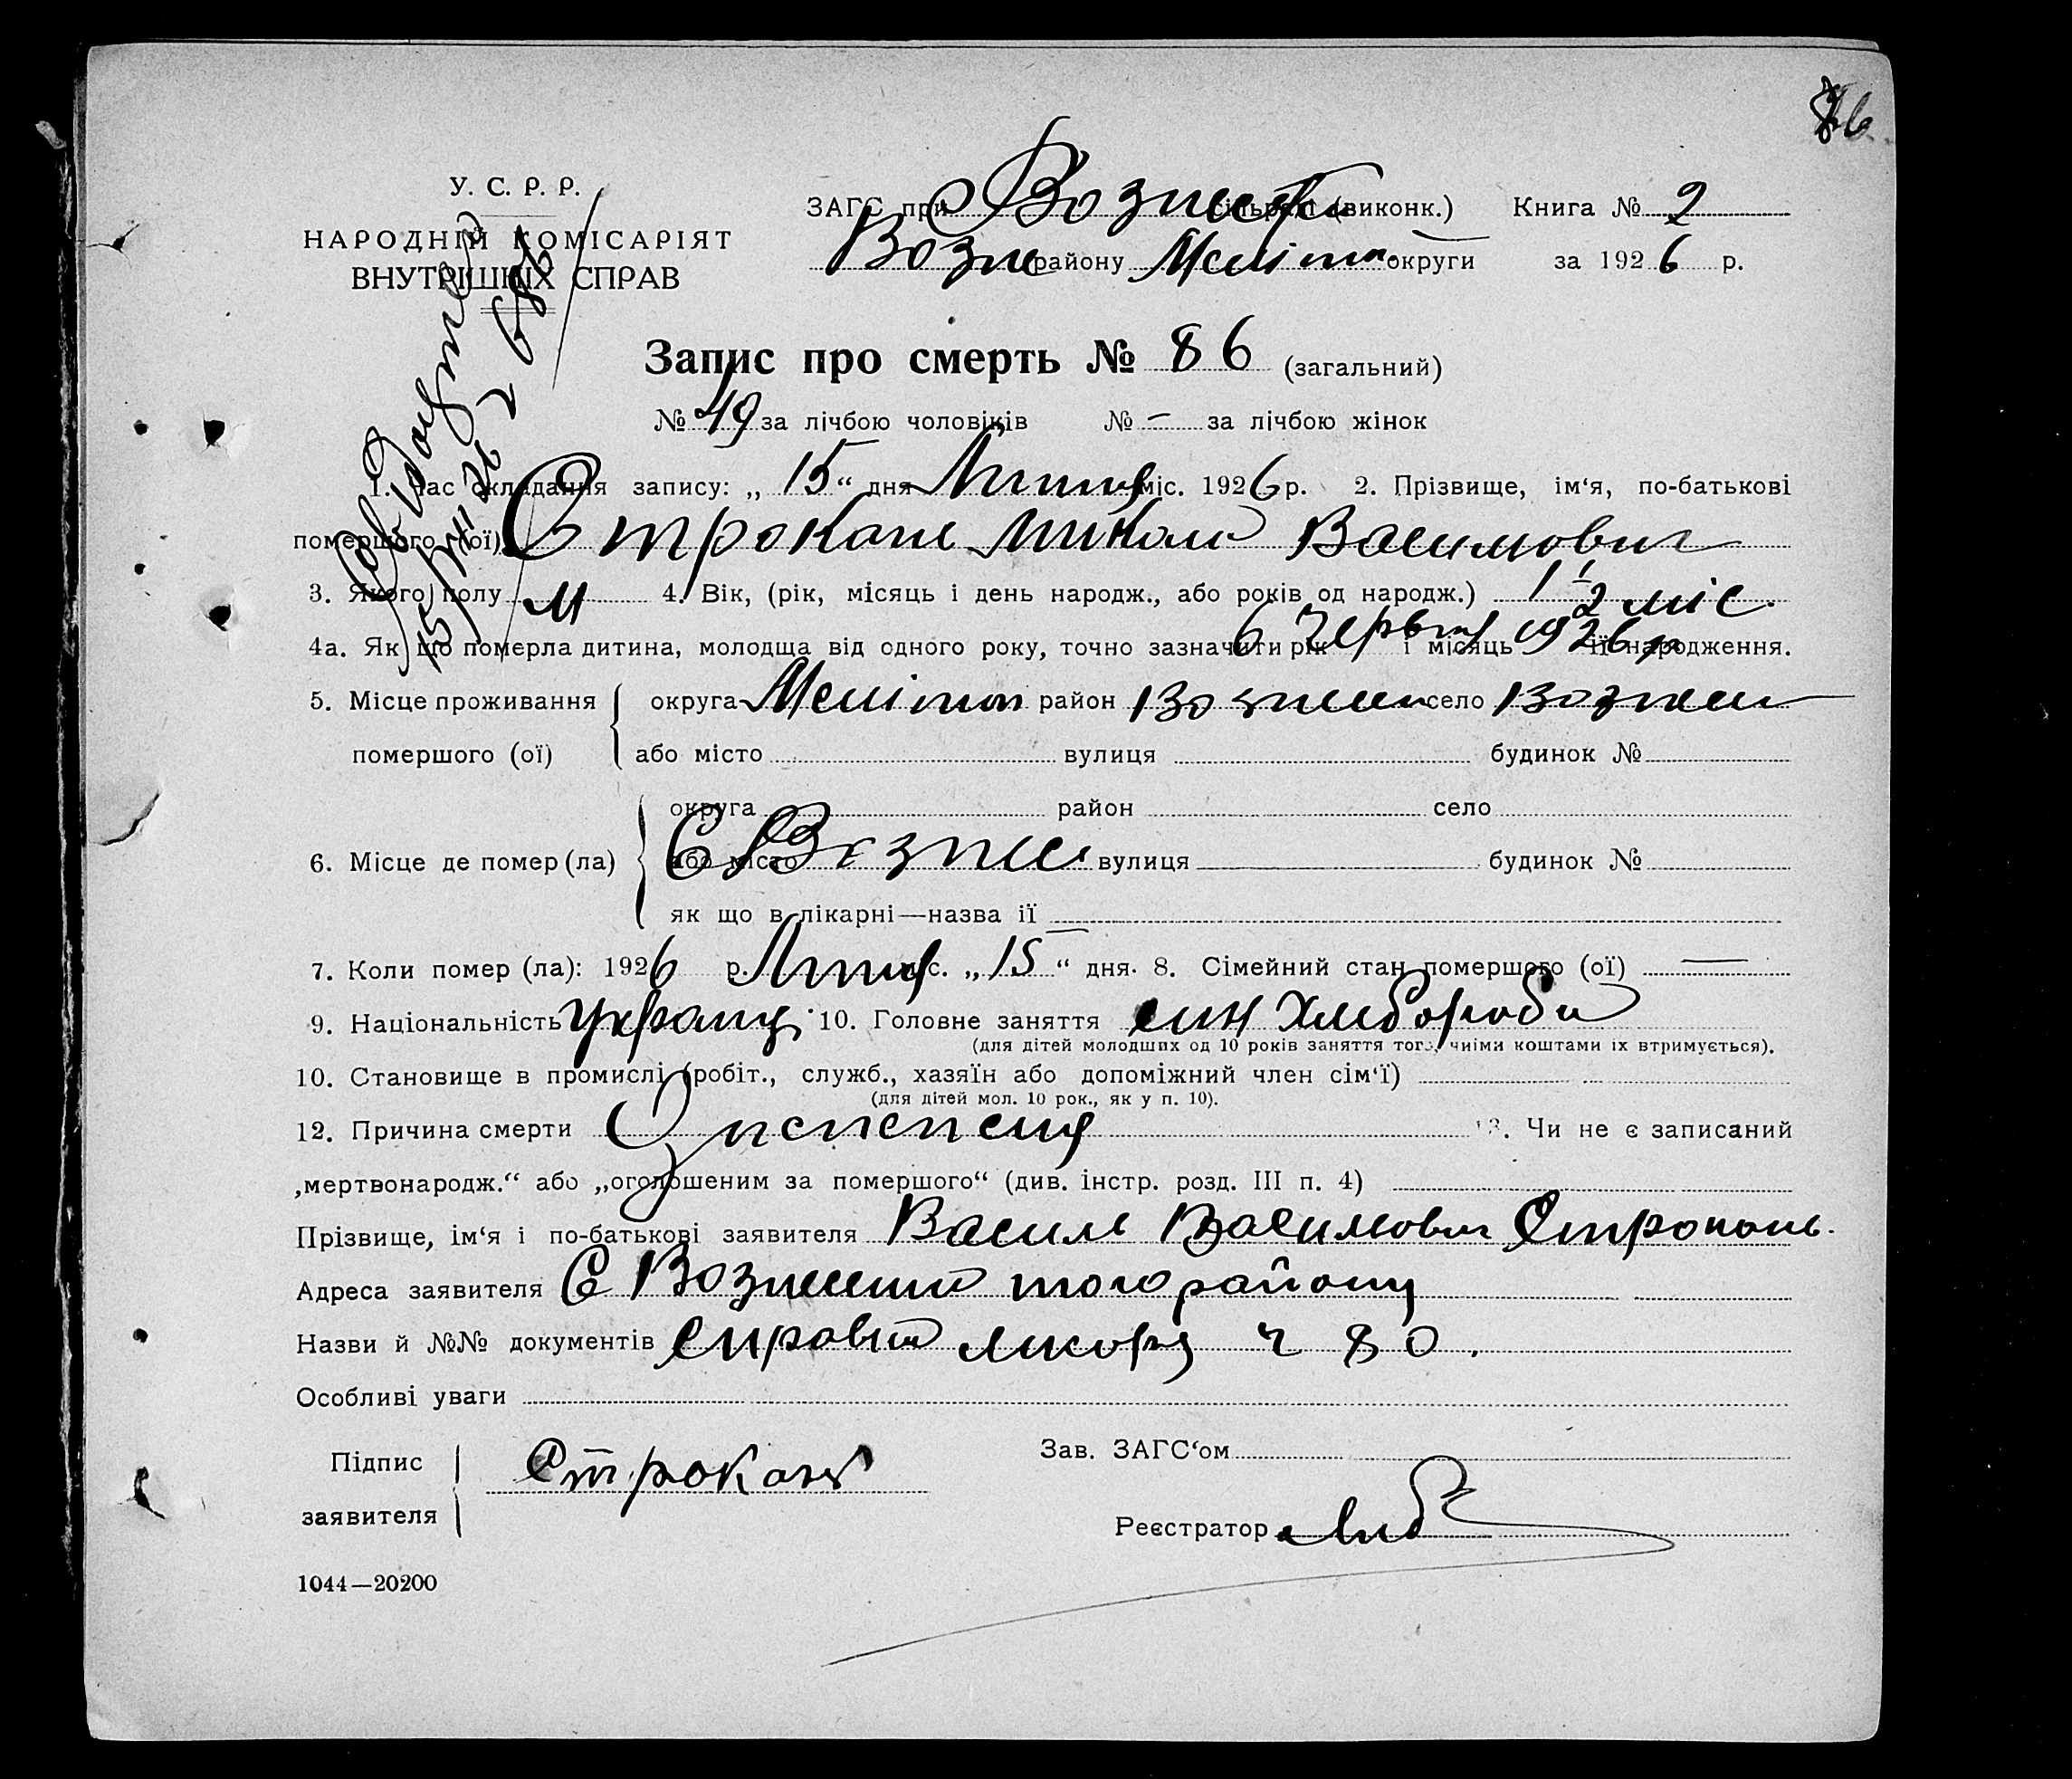 86
У. С. Р. Р.
НАРОДНІЙ КОМІСАРІЯТ
ВНУТРІШНІХ СПРАВ
ЗАГС при Возне сільраді (виконк.) Книга № 2
Возне району Меліт. округи за 1926 р.
Запис про смерть № 86 (загальний)
№ 49 за лічбою чоловіків № — за лічбою жінок
1. Час складання запису: „15“ дня Липня міс. 1926 р. 2. Прізвище, ім‘я, по-батькові
помершого (ої) Строкань Микола Васильович
3. Якого полу М 4. Вік, (рік, місяць і день народж., або років од народж.) 1 1/2 міс.
4а. Як що померла дитина, молодша від одного року, точно зазначити рік і місяць її народження. 6 Червня 1926 р
5. Місце проживання округа Меліто район Вознесен село Вознесен
помершого (ої) або місто вулиця будинок №
округа район село
6. Місце де помер (ла) або місто С Вознесе вулиця будинок №
як що в лікарні—назва її
7. Коли помер (ла): 1926 р. Липня міс. „15“ дня. 8. Сімейний стан помершого (ої) —
9. Національність Украинц. 10. Головне заняття син Хлібороба
(для дітей молодших од 10 років заняття того, чиїми коштами їх втримується).
10. Становище в промислі (робіт., служб., хазяїн або допоміжний член сім‘ї)
(для дітей мол. 10 рок., як у п. 10).
12. Причина смерти Диспепсия 13. Чи не є записаний
„мертвонародж.“ або „оголошеним за помершого“ (див. інстр. розд. III п. 4)
Прізвище, ім‘я і по-батькові заявителя Василь Васильович Строкань.
Адреса заявителя С Вознесенка того району
Назви й №№ документів справка лікаря ч 80.
Особливі уваги
Підпис заявителя Строкань
Зав. ЗАГС‘ом
Реєстратор
1044—20200